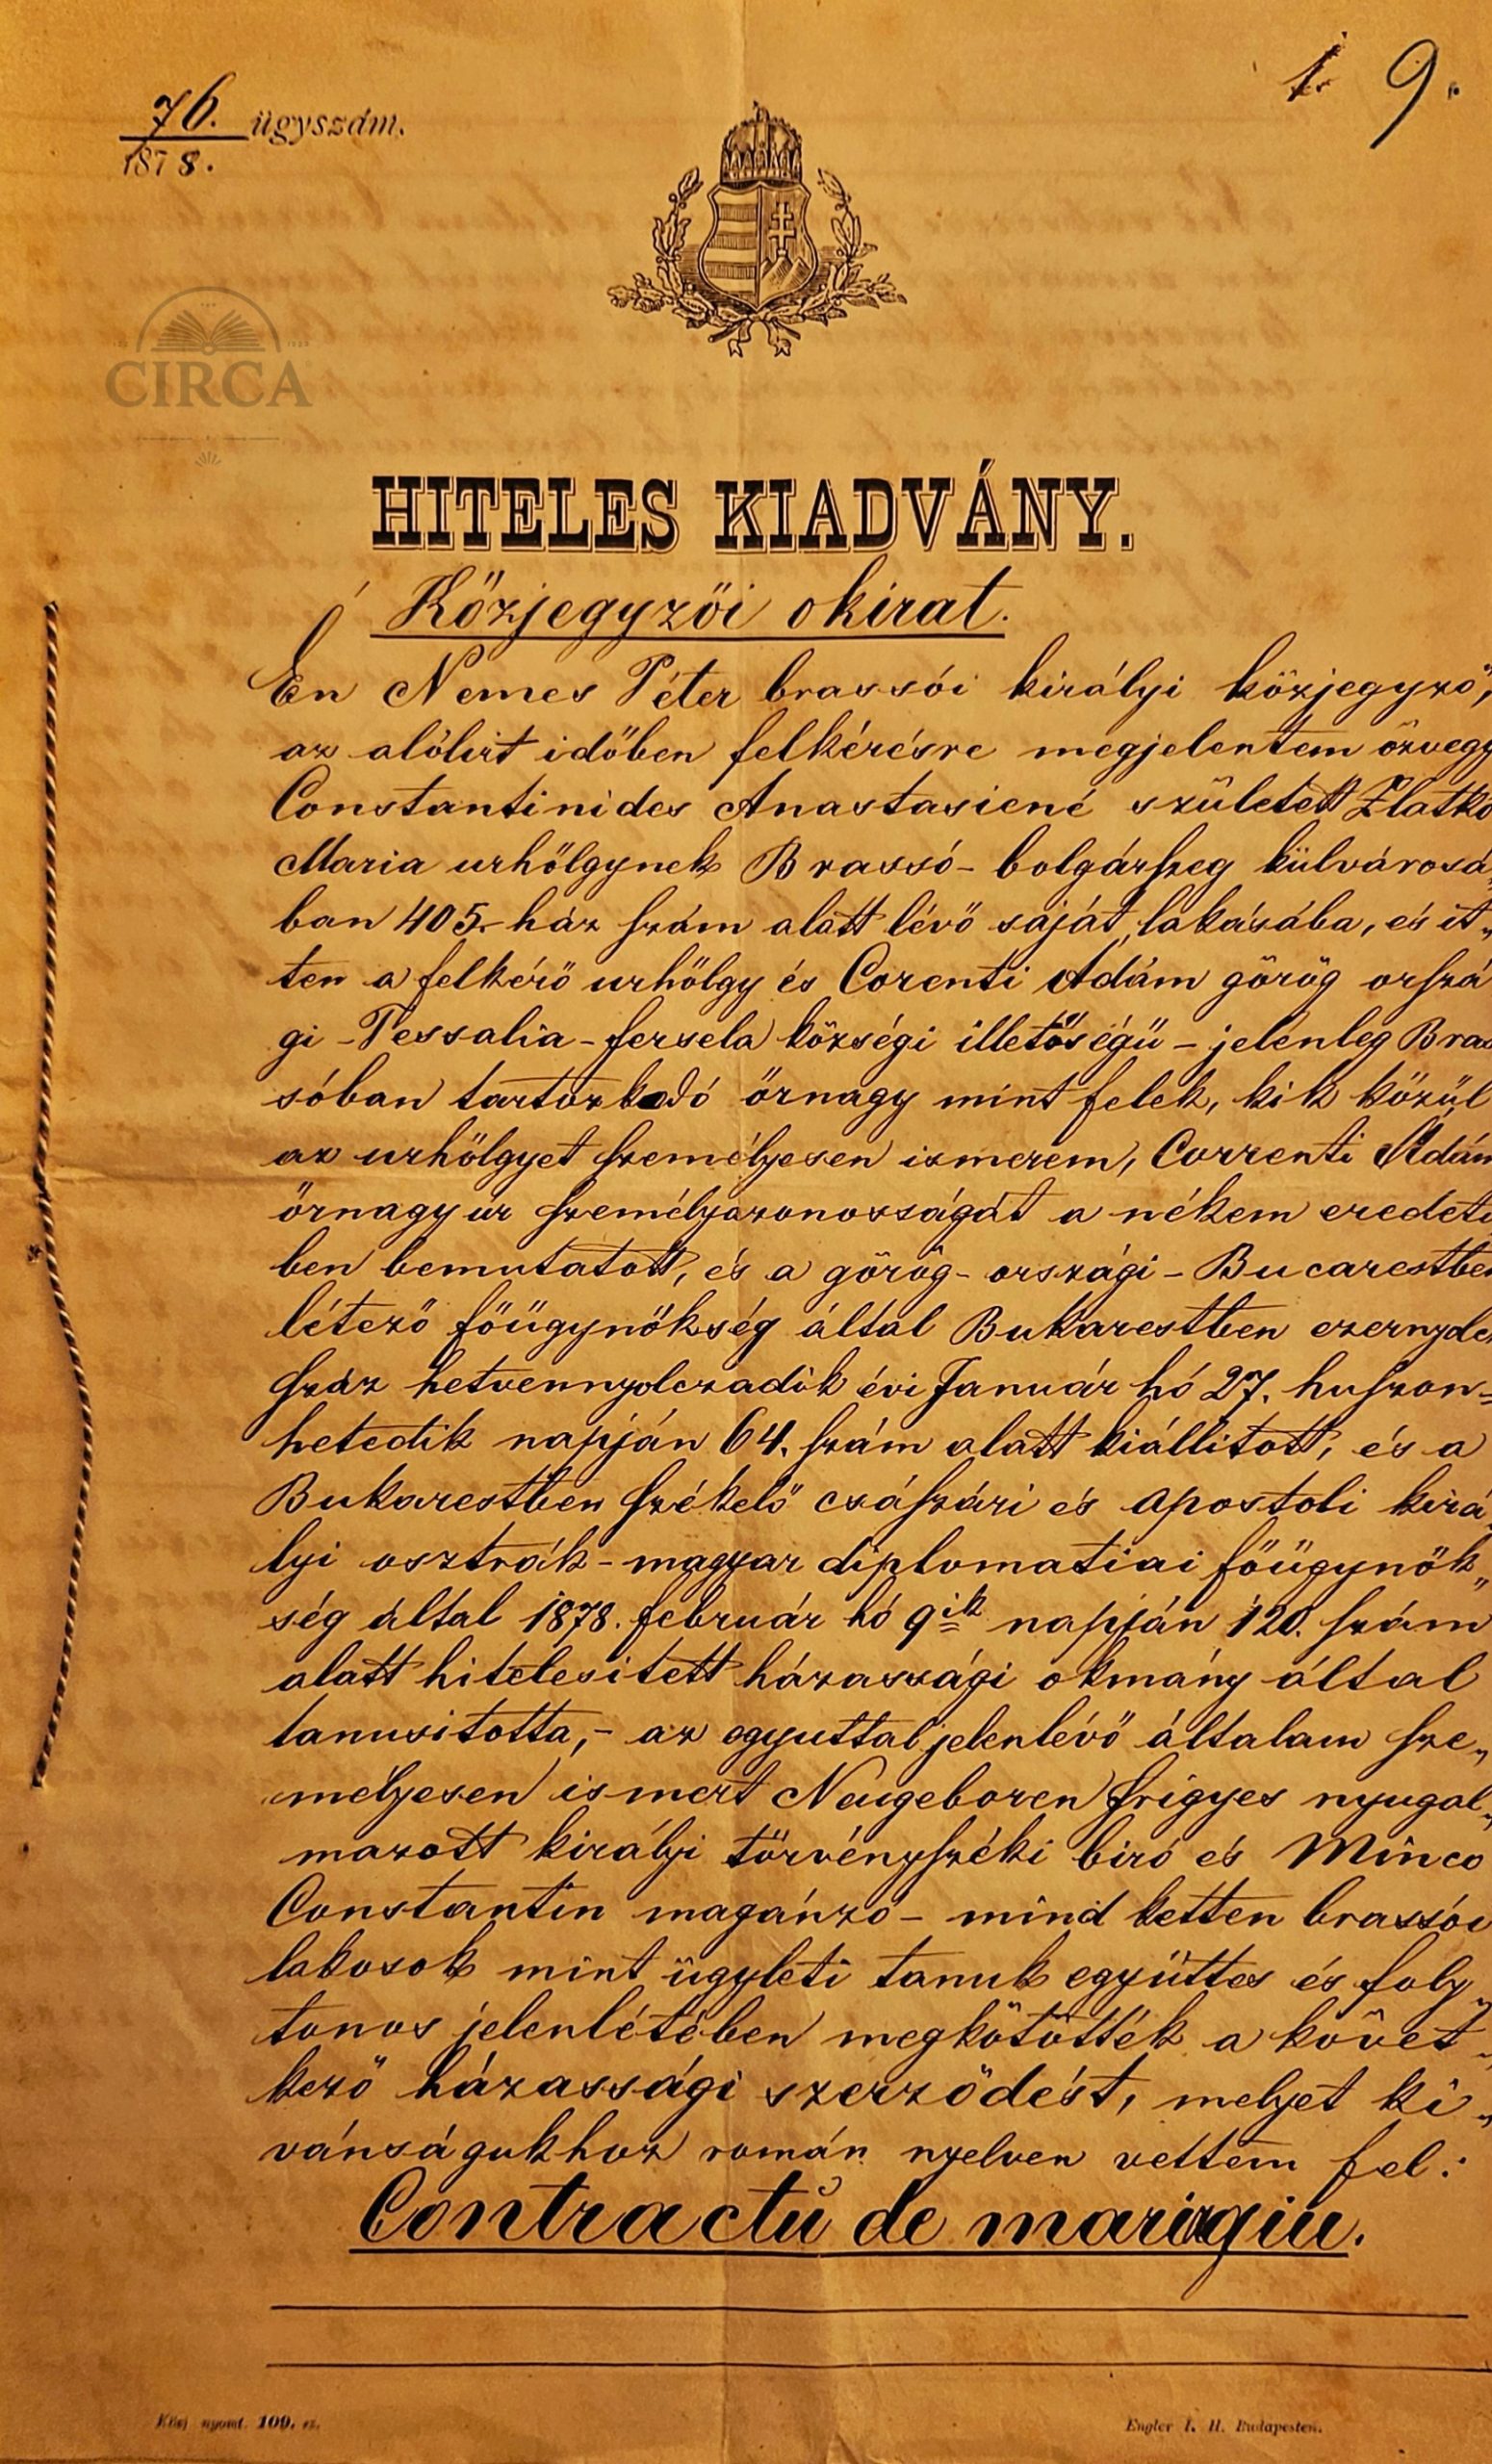 1. 9.
76. ügyszám.
1878.
CIRCA
HITELES KIADVÁNY.
Közjegyzői okirat.
Én Nemes Péter brassói királyi közjegyző,
az alólirt időben felkérésre megjelentem özvegy
Constantinides Anastasiené született Zlatko
Maria urhölgynek Brassó-bolgárszeg külvárosá„
ban 405.- ház szám alatt lévő saját lakásába, és it„
ten a felkérő urhölgy és Corenti Adám görög orszá
gi - Tessalia - fersela községi illetőségű - jelenleg Bras
sóban tartozkodó őrnagy mint felek, kik közül
az urhölgyet személyesen ismerem, Correnti Adám
őrnagy ur személyazonosságát a nékem eredeti
ben bemutatott, és a görög-országi - Bucarestben
létező főügynökség által Bukarestben ezernyolcz
száz hetvennyolczadik évi Január hó 27. huszon=
hetedik napján 64. szám alatt kiállitott, és a
Bukarestben székelő császári és apostoli kirá„
lyi osztrák-magyar diplomatiai főügynök„
ség által 1878. február hó 9ik napján 120. szám
alatt hitelesitett házassági okmány által
tanusitotta,- az egyuttal jelenlévő általam sze„
mélyesen ismert Neugeboren Frigyes nyugal„
mazott királyi törvényszéki biró és Minco
Constantin magánzó - mind ketten brassói
lakosok mint ügyleti tanuk együttes és foly„
tonos jelenlétében megkötötték a követ„
kező házassági szerződést, melyet ki„
vánságukhoz román nyelven vettem fel:
Contractŭ de mariagiu.
Közj. nyomt. 109. sz. Engler I. H. Budapesten.